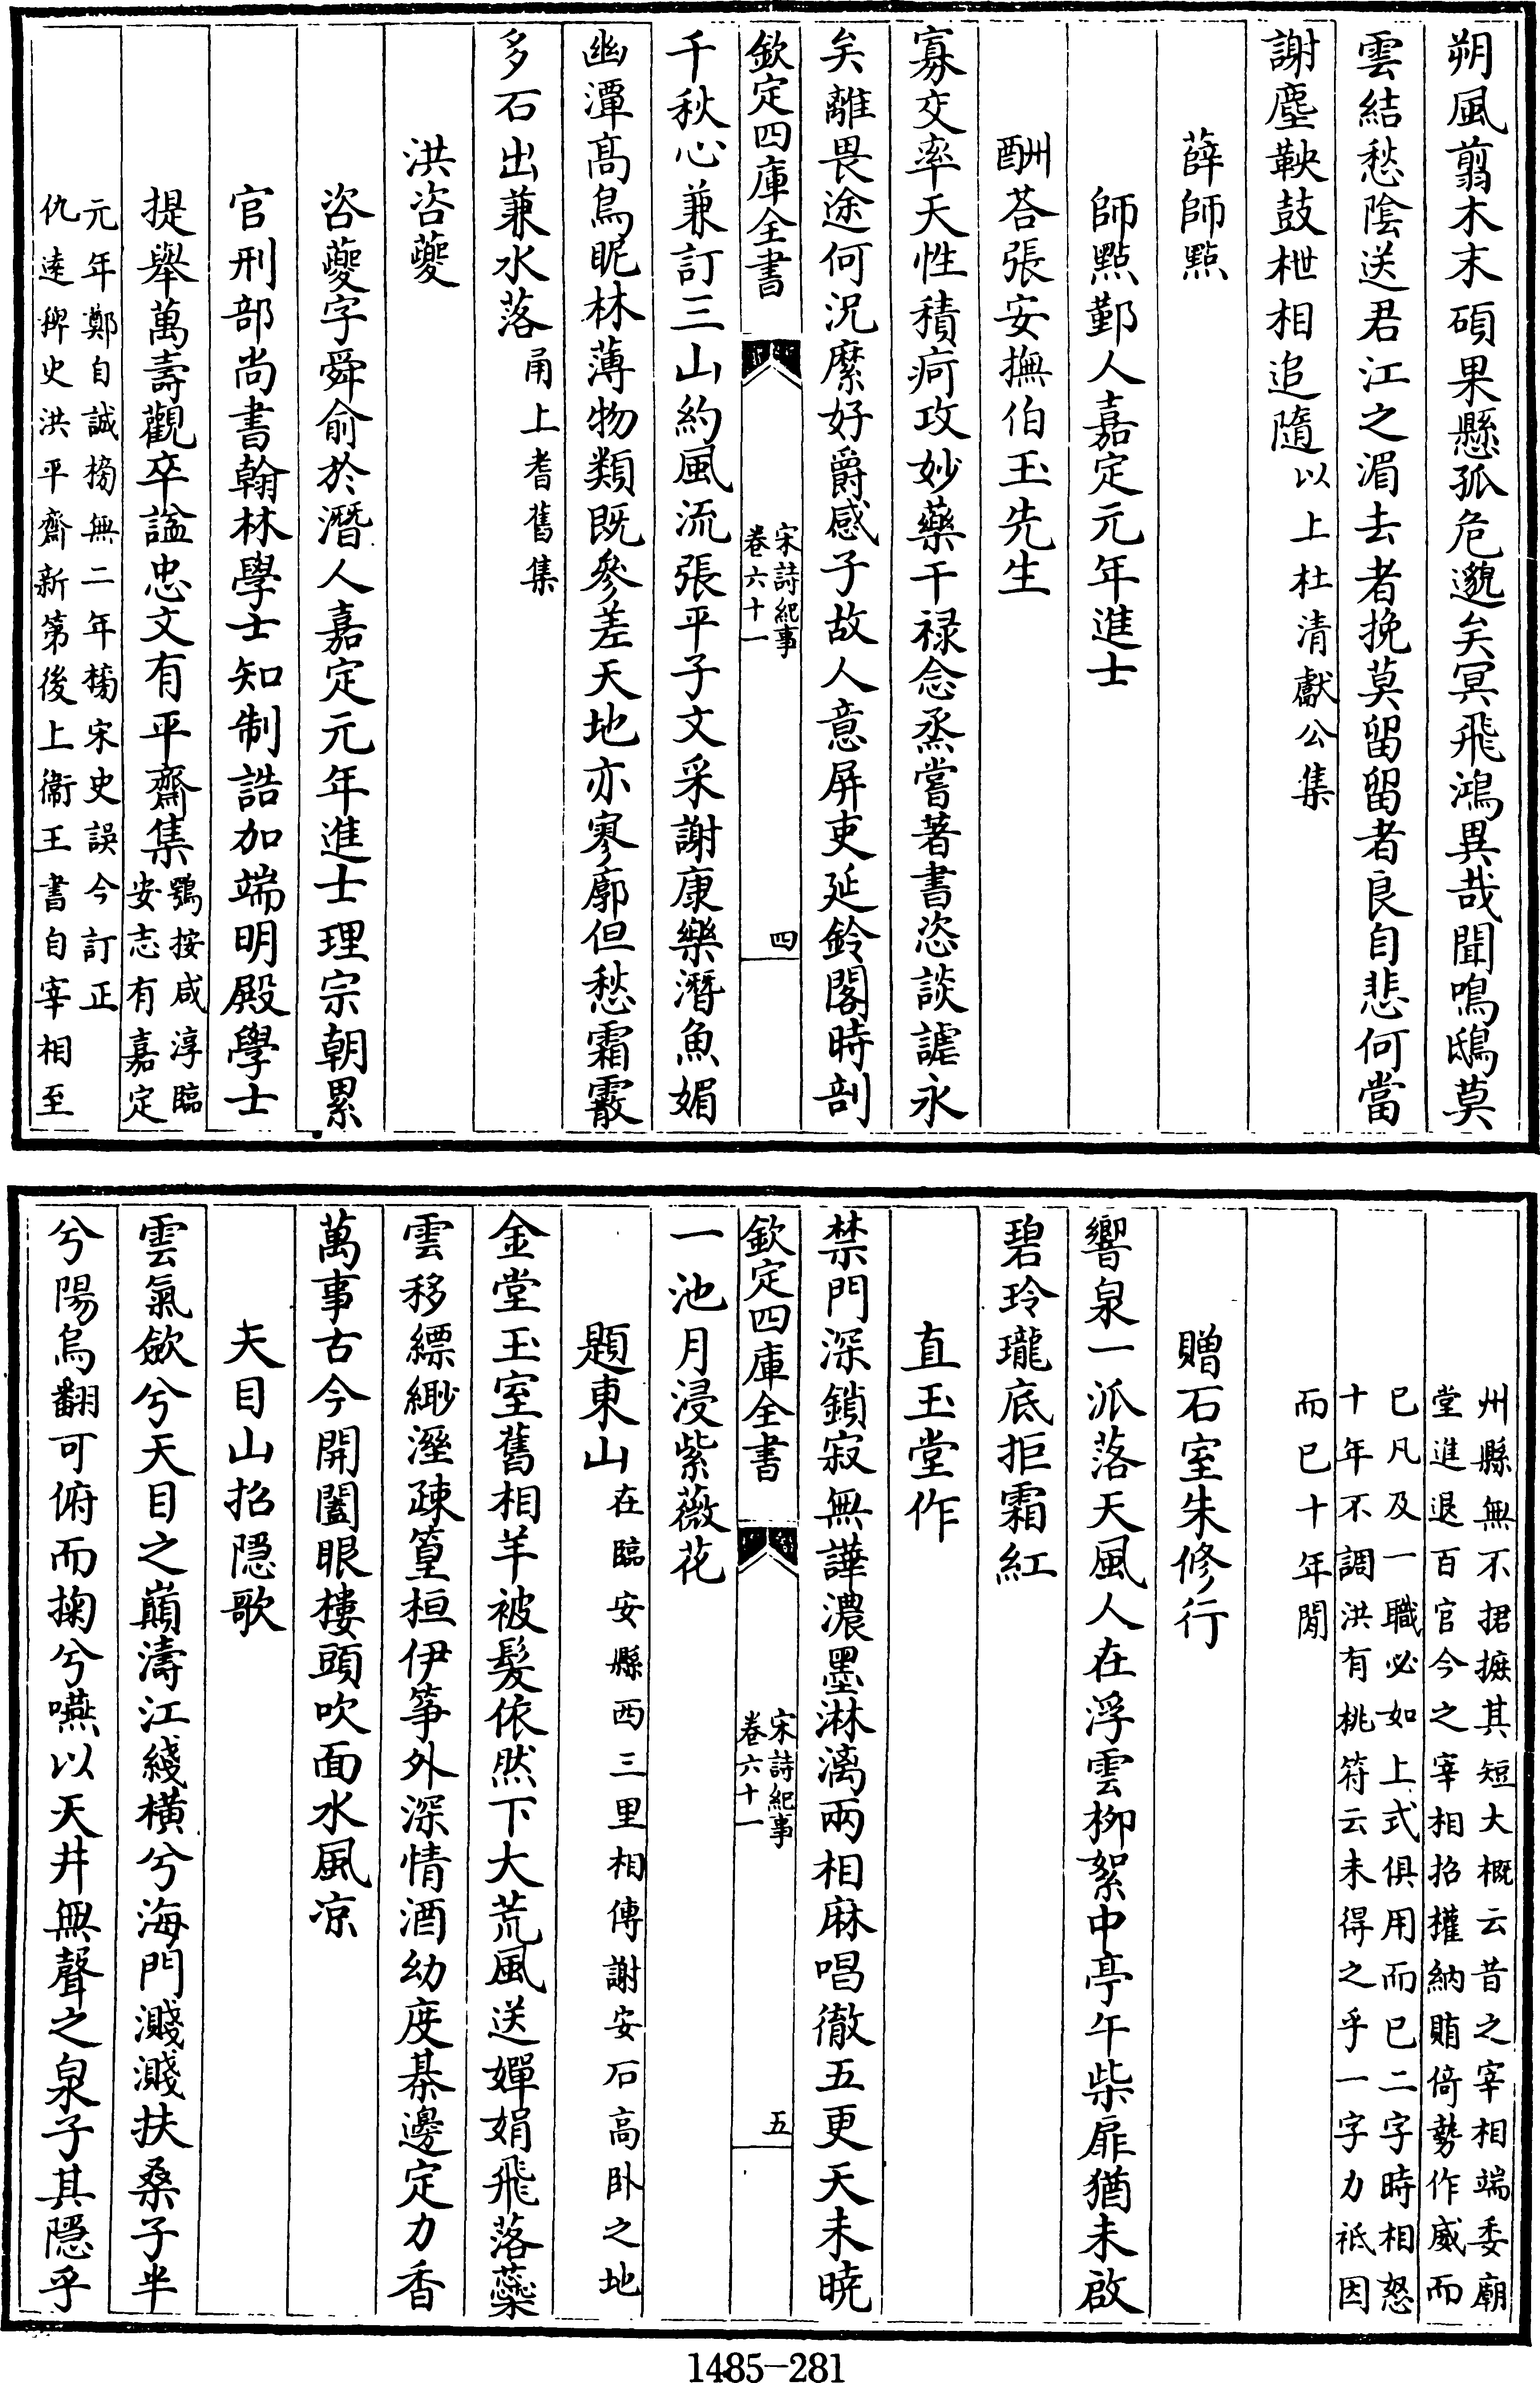 朔風翦木末碩果懸孤危邈矣冥飛鴻異哉聞鳴鴟莫
雲結愁陰送君江之湄去者挽莫留留者良自悲何當
謝塵鞅鼓枻相追隨以上杜清獻公集
薛師點
師點鄞人嘉定元年進士
酬荅張安撫伯玉先生
寡交率天性積疴攻妙藥干禄念烝嘗著書恣談謔永
矣離畏途何況縻好爵感子故人意屏吏延鈴閣時剖
欽定四庫全書
宋詩紀事
卷六十一
四
千秋心兼訂三山約風流張平子文采謝康樂潛魚媚
幽潭高鳥昵林薄物類既參差天地亦寥廓但愁霜霰
多石出兼水落甬上耆舊集
洪咨夔
咨夔字舜俞於潛人嘉定元年進士理宗朝累
官刑部尚書翰林學士知制誥加端明殿學士
提舉萬壽觀卒諡忠文有平齋集鶚按咸淳臨
安志有嘉定
元年鄭自誠榜無二年榜宋史誤今訂正
仇逺稗史洪平齋新第後上衞王書自宰相至
州縣無不捃摭其短大概云昔之宰相端委廟
堂進退百官今之宰相招權納賄倚勢作威而
已凡及一職必如上式俱用而已二字時相怒
十年不調洪有桃符云未得之乎一字力祇因
而已十年閒
贈石室朱修行
響泉一派落天風人在浮雲柳絮中亭午柴扉猶未啟
碧玲瓏底拒霜紅
直玉堂作
禁門深鎖寂無譁濃墨淋漓兩相麻唱徹五更天未曉
欽定四庫全書
宋詩紀事
卷六十一
五
一池月浸紫薇花
題東山在臨安縣西三里相傳謝安石高卧之地
金堂玉室舊相羊被髮依然下大荒風送嬋娟飛落蘂
雲移縹緲溼疎篁桓伊箏外深情酒幼度棊邊定力香
萬事古今開闔眼樓頭吹面水風凉
天目山招隠歌
雲氣歛兮天目之巔濤江綫横兮海門濺濺扶桑子半
兮陽烏翻可俯而掬兮嚥以天井無聲之泉子其隠乎
1485-281